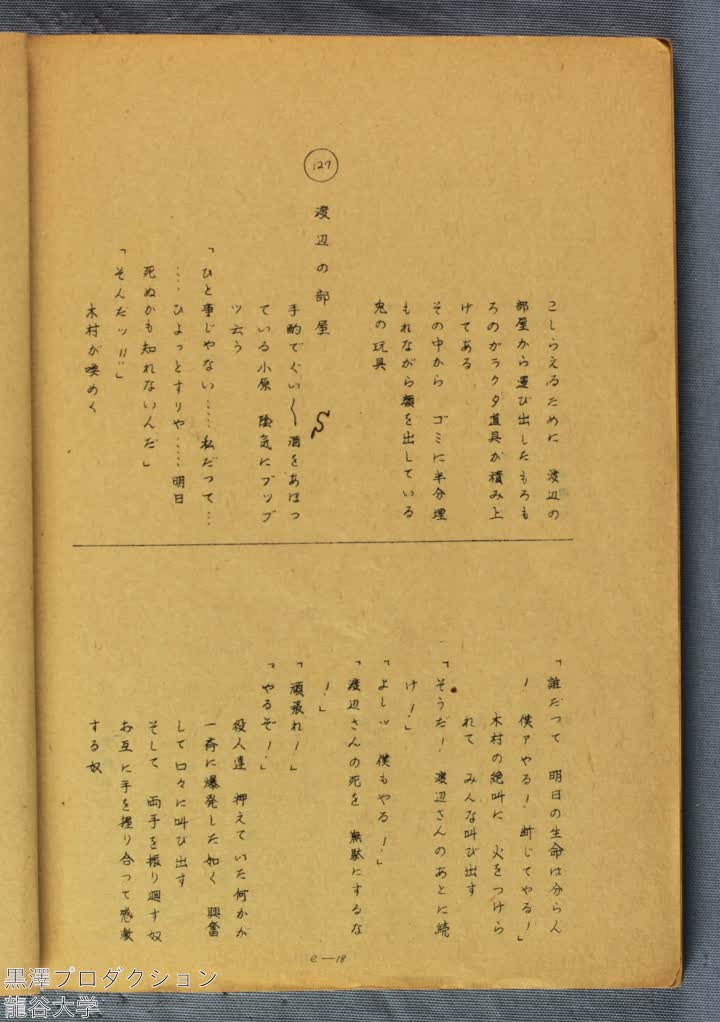 こしらえるために　渡辺の
部屋から運び出したもろも
ろのガラクタ道具が積み上
けてある
その中から　ゴミに半分埋
もれながら顔を出している
兎の玩具
127　渡辺の部屋
手酌でぐい〱酒をあほつ
ている小原　陰気にブツブ
ツ云う
「ひと事じゃない……私だつて…
……ひよっとすりや……明日
死ぬかも知れないんだ」
「そんだッ!!”」
木村が喚めく
「誰だつて　明日の生命は分らん
！　僕アやる！　断じてやる！」
木村の絶叫に　火をつけら
れて　みんな叫び出す
「そうだ！　渡辺さんのあとに続
け！」
「よしッ　僕もやる！」
「渡辺さんの死を　無駄にするな
！」
「頑張れ！」
「やるぞ！」
役人達　押えていた何かが
一斉に爆発した如く　興奮
して口々に叫び出す
そして　両手を振り廻す奴
お互に手を握り合って感激
する奴
e—18
黒澤プロダクション
龍谷大学